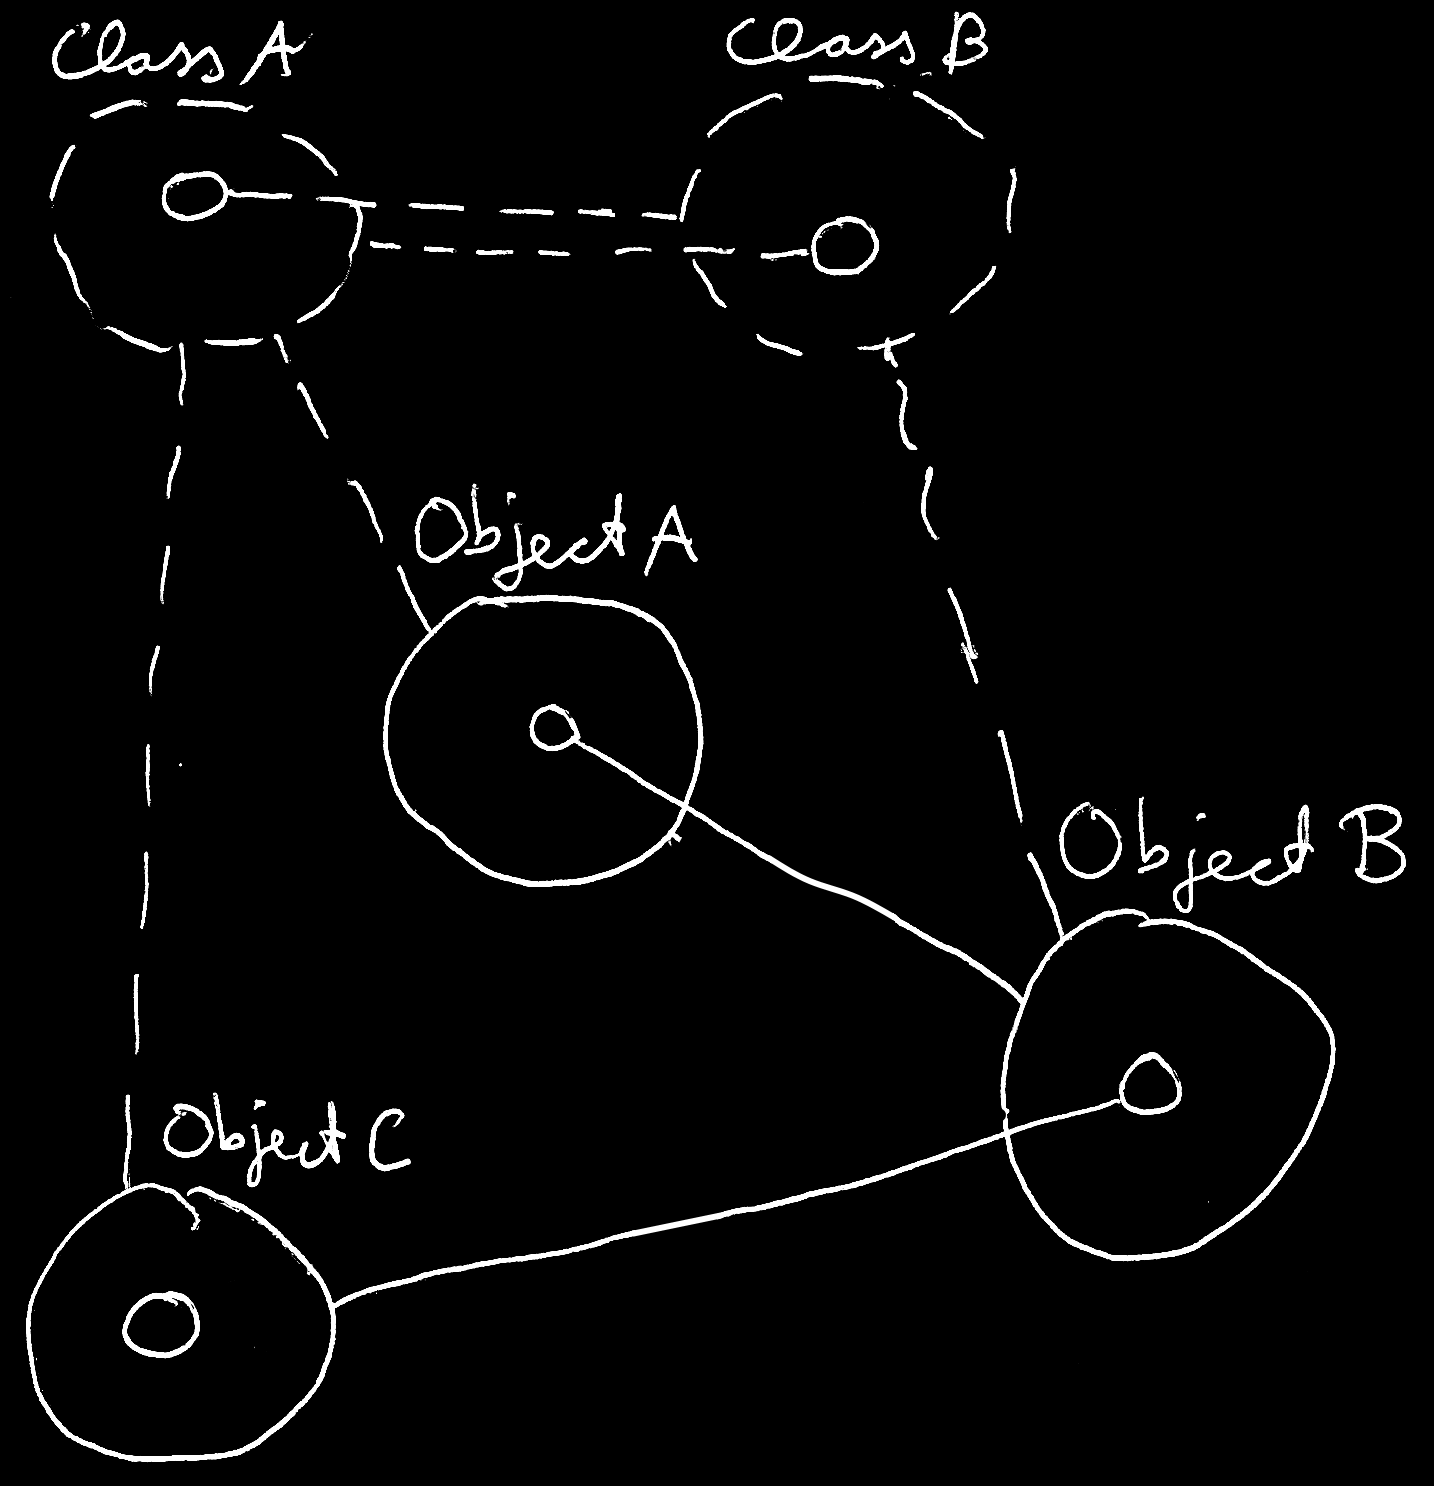 Class A
Class B
Object A
Object B
Object C